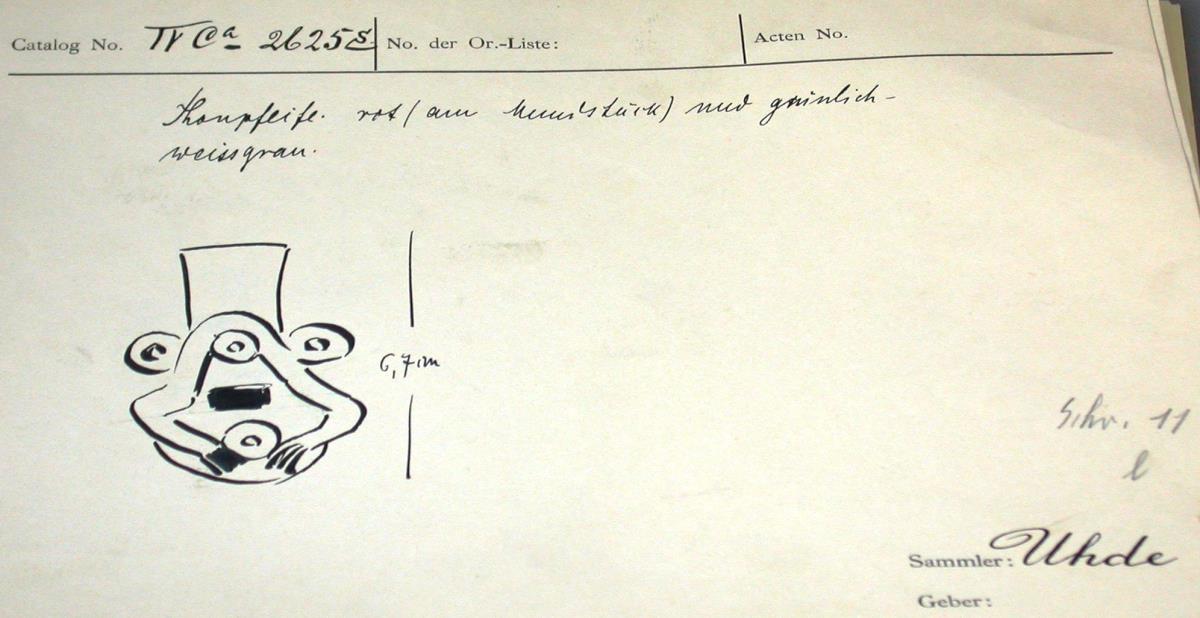 Catalog No. IV Ca 26255 No. der Or.-Liste: Acten No.
Thonpfeife. rot (am Mundstück) und grünlich-
weissgrau.
6,7 cm
Schr. 11
l
Sammler: Uhde
Geber: